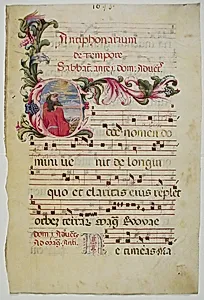 Antiphonarium
de tempore
Sabbat. ante i. dom. Aduet.
Ecce nomen do
mini ue nit de longin
quo et claritas eius replet
orbez terrar
dom. i. Aduet.
Ne timeas Ma